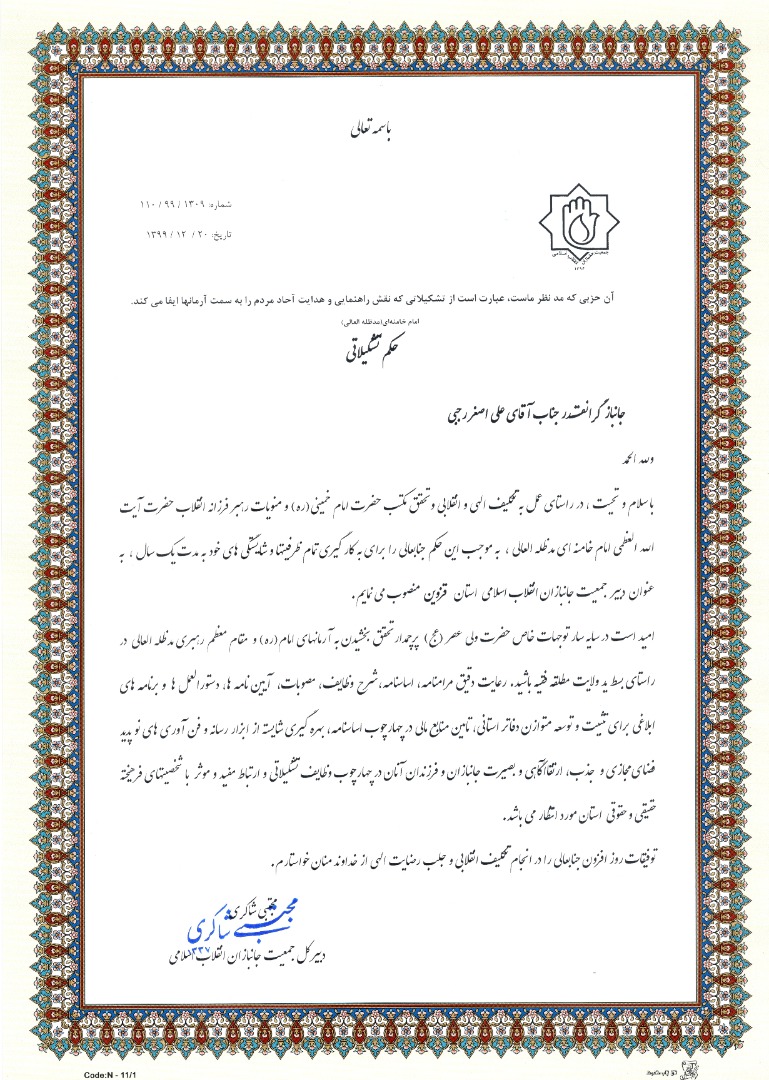 باسمه تعالی
شماره: ۱۳۰۹ / ۹۹ / ۱۱۰
تاریخ: ۲۰ / ۱۲ / ۱۳۹۹
جمعیت جانبازان انقلاب اسلامی
آن حزبی که مد نظر ماست، عبارت است از تشکیلاتی که نقش راهنمایی و هدایت آحاد مردم را به سمت آرمانها ایفا می کند.
امام خامنه‌ای(مدظله العالی)
حکم تشکیلاتی
جانباز گرانقدر جناب آقای علی اصغر رجبی
ولله الحمد
با سلام و تحیت ، در راستای عمل به تکلیف الهی و انقلابی و تحقق مکتب حضرت امام خمینی(ره) و منویات رهبر فرزانه انقلاب حضرت آیت
الله العظمی امام خامنه ای مدظله العالی ، به موجب این حکم جنابعالی را برای به کار گیری تمام ظرفیتها و شایستگی های خود به مدت یک سال ، به
عنوان دبیر جمعیت جانبازان انقلاب اسلامی استان قزوین منصوب می نمایم .
امید است در سایه سار توجهات خاص حضرت ولی عصر (عج) پرچمدار تحقق بخشیدن به آرمانهای امام(ره) و مقام معظم رهبری مدظله العالی در
راستای بسط ید ولایت مطلقه فقیه باشید. رعایت دقیق مرامنامه، اساسنامه، شرح وظایف، مصوبات، آیین نامه ها، دستورالعمل ها و برنامه های
ابلاغی برای تثبیت و توسعه متوازن دفاتر استانی، تامین منابع مالی در چهارچوب اساسنامه، بهره گیری شایسته از ابزار رسانه و فن آوری های نو پدید
فضای مجازی و جذب، ارتقاآگاهی و بصیرت جانبازان و فرزندان آنان در چهار چوب وظایف تشکیلاتی و ارتباط مفید و موثر با شخصیتهای فرهیخته
حقیقی و حقوقی استان مورد انتظار می باشد.
توفیقات روز افزون جنابعالی را در انجام تکلیف انقلابی و جلب رضایت الهی از خداوند منان خواستارم .
مجتبی شاکری
مجتبی شاکری
دبیرکل جمعیت جانبازان انقلاب اسلامی
Code:N - 11/1